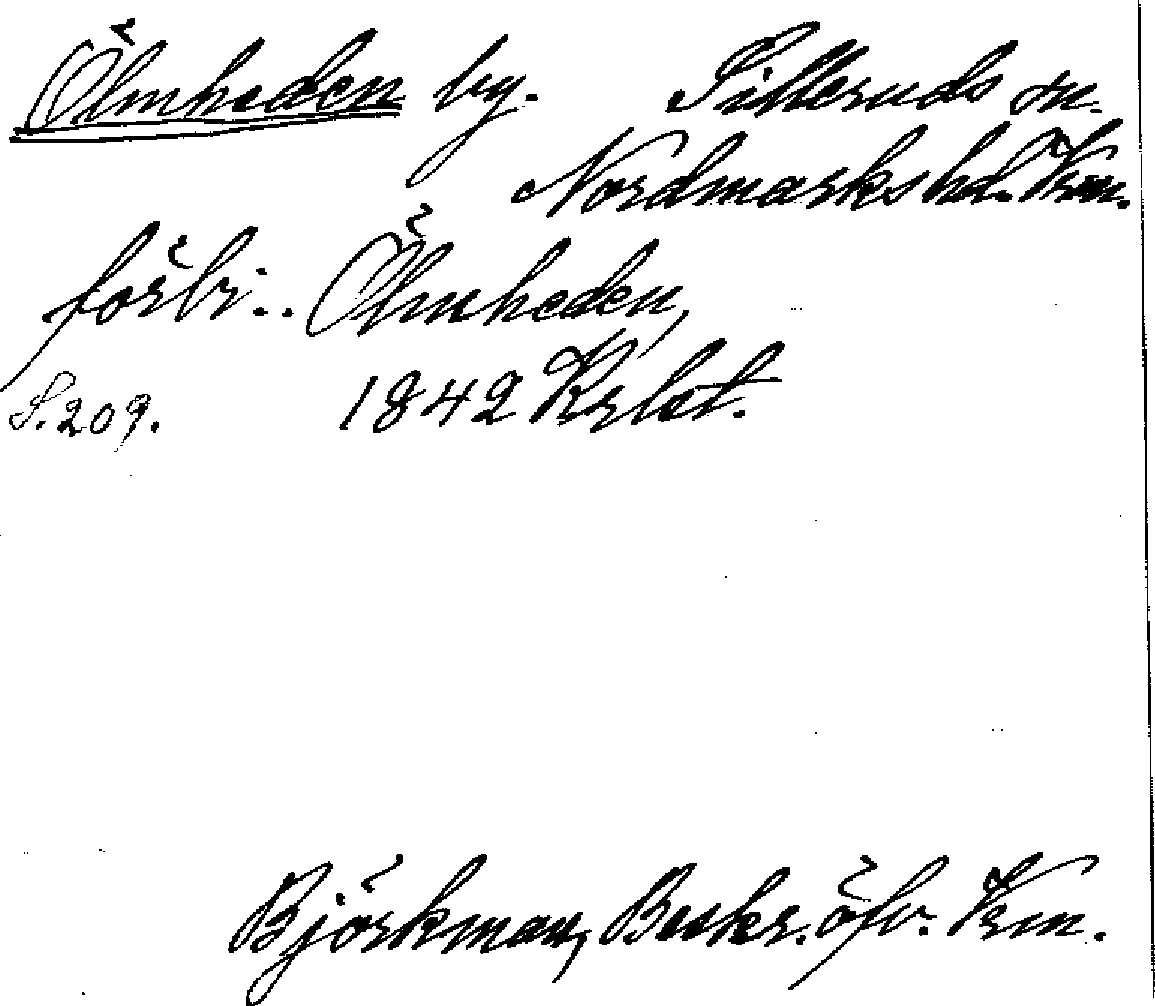 Ölmheden by. Silleruds sn.
Nordmarks hd. Vrm.
förbi.. Ölmheden,
S. 209. 1842 Krlst.
Björkman, Beskr. öfv. Vrm.